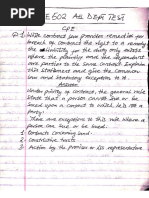 E602 All Dept Test
CPE
Q1. While contract law provides remedies for
breach of contract the right to a remedy
& the liability for the duty only exists
where the plaintiff and the defendant
are parties to the same contract. Explain
this statement and give the common
law and statutory exceptions to it.
Answer
Under privity of contract, the general rule
is that a person cannot sue or be
sued on a contract to which he is
a party.
There are exceptions to this rule where a
person can sue or be sued.
1. Contracts concerning land
2. Constructive trusts
3. Action by the parties or its representatives